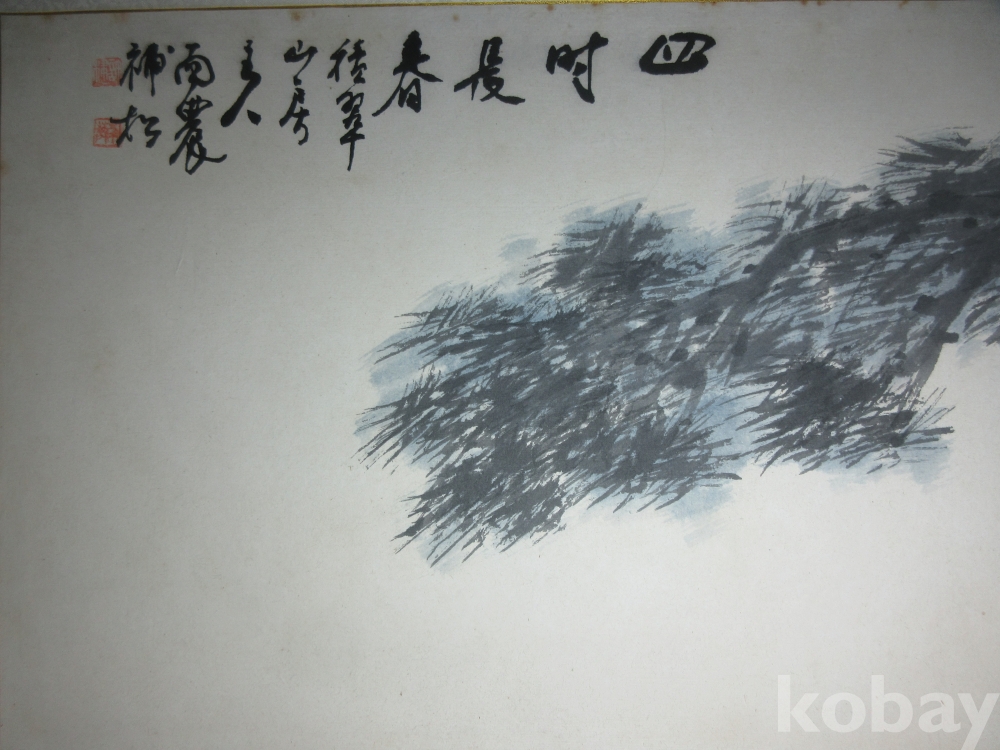 四時長春
積翠
山居
主人
雨農
補松
kobay